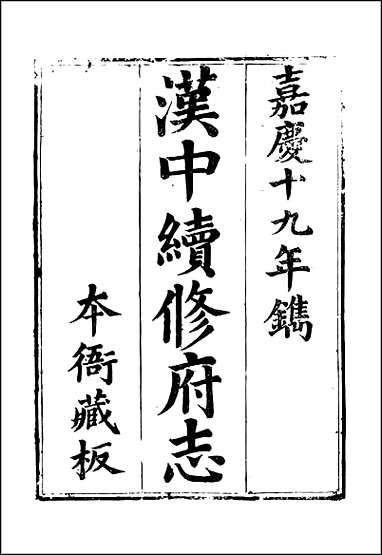 嘉慶十九年鐫
漢中續修府志
本衙藏板